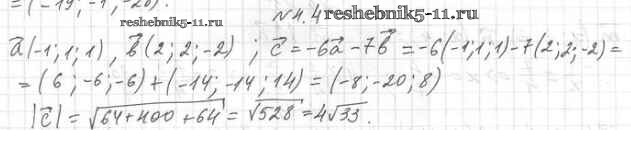 = (-19; -1; -20).
№ 4.4 reshebnik5-11.ru
reshebnik5-11.ru
a⃗(-1; 1; 1), b⃗(2; 2; -2) ; c⃗ = -6a⃗ - 7b⃗ = -6(-1; 1; 1) - 7(2; 2; -2) =
= (6; -6; -6) + (-14; -14; 14) = (-8; -20; 8)
|c⃗| = √64+400+64 = √528 = 4√33.